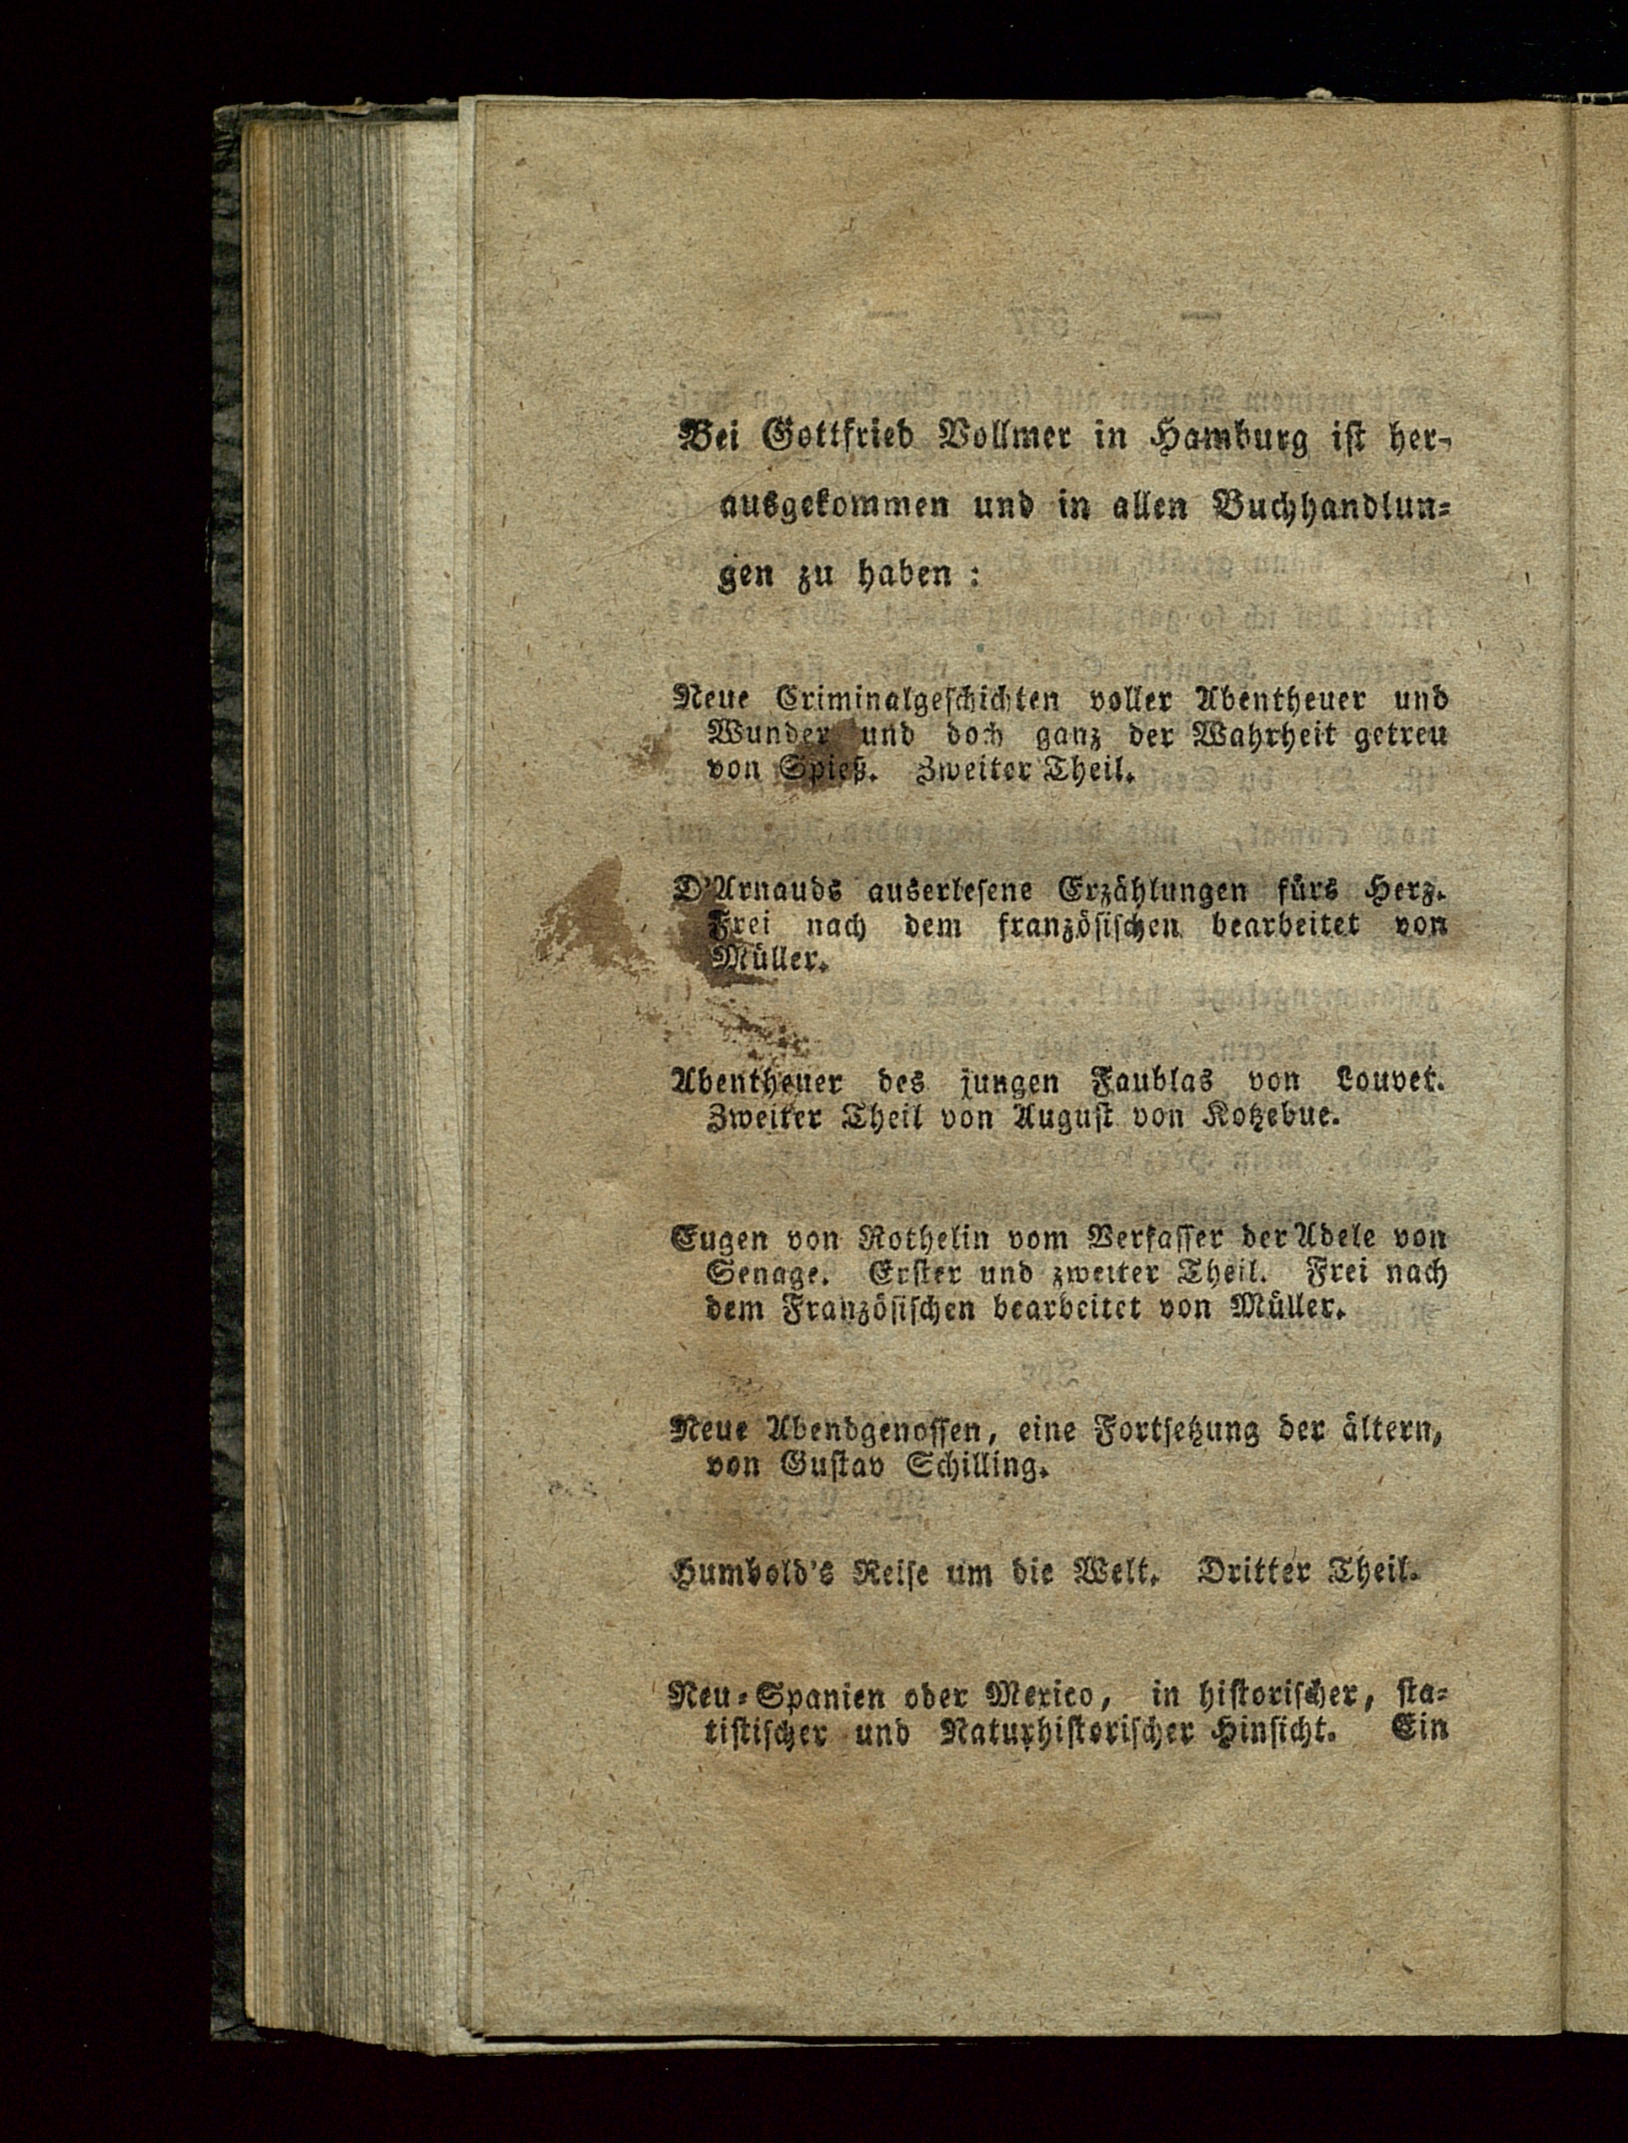 Bei Gottfried Vollmer in Hamburg ist her-
ausgekommen und in allen Buchhandlun-
gen zu haben:
Neue Criminalgeschichten voller Abentheuer und
Wunder und doch ganz der Wahrheit getreu
von Spieß. Zweiter Theil.
D'Arnauds auserlesene Erzählungen fürs Herz.
Frei nach dem französischen bearbeitet von
Müller.
Abentheuer des jungen Faublas von Louvet.
Zweiter Theil von August von Kotzebue.
Eugen von Rothelin vom Verfasser der Adele von
Senage. Erster und zweiter Theil. Frei nach
dem Französischen bearbeitet von Müller.
Neue Abendgenossen, eine Fortsetzung der ältern,
von Gustav Schilling.
Humbold's Reise um die Welt. Dritter Theil.
Neu-Spanien oder Mexico, in historischer, sta-
tistischer und Naturhistorischer Hinsicht. Ein